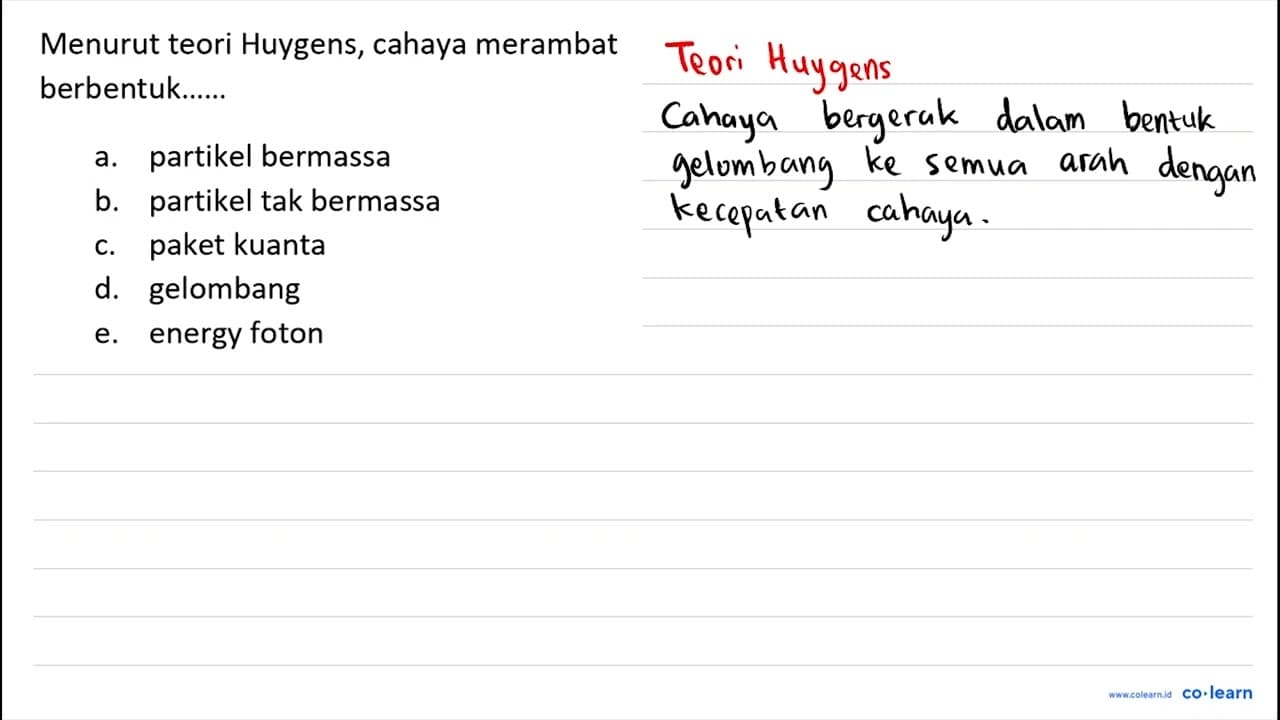 Menurut teori Huygens, cahaya merambat
berbentuk......
a. partikel bermassa
b. partikel tak bermassa
c. paket kuanta
d. gelombang
e. energy foton
Teori Huygens
Cahaya bergerak dalam bentuk
gelombang ke semua arah dengan
kecepatan cahaya.
www.colearn.id co·learn